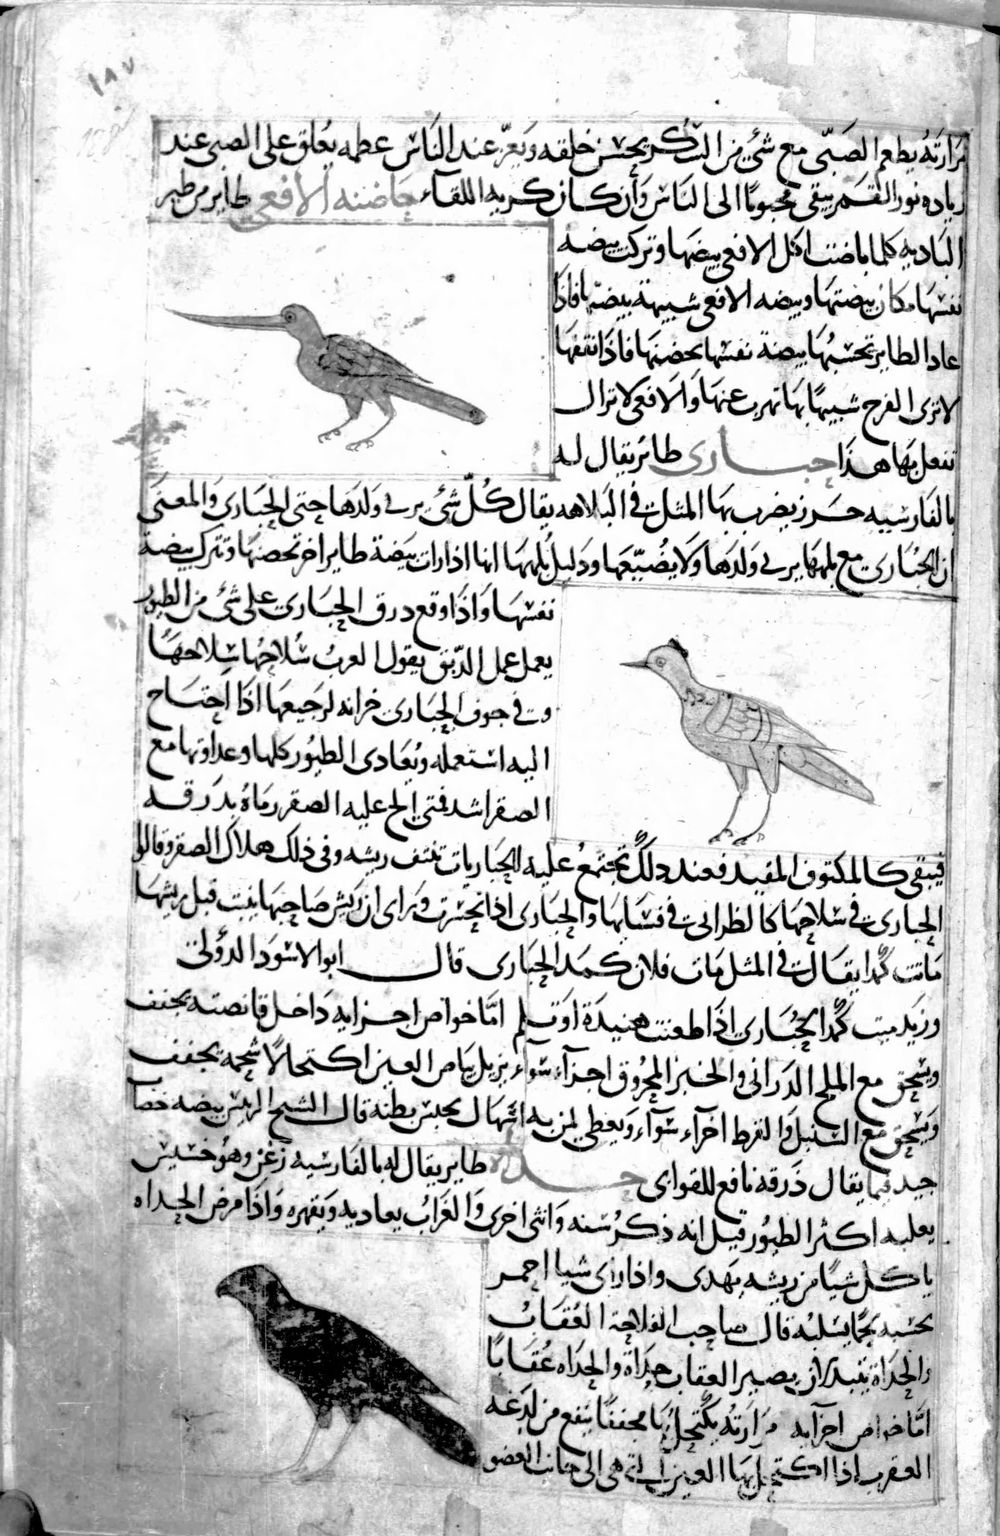 ١٨٧
مرارته يطعم الصبى مع شئ من السكر يحسن خلقه ويعز عند الناس عظمه يعلق على الصبى عند
زيادة نور القمر يبقى محبوبا الى الناس وان كان كريه اللقاء حاضنة الافعى طاير من طير
البادية كلما باضت اكل الافعى بيضها وتركت بيضه
نفسها مكان بيضتها وبيضه الافعى شبيهة بيضها فاذا
عاد الطاير تحسبها بيضة نفسها تحضنها فاذا نقفها
لا ترى الفرخ شبيها بها تهرب عنها والافعى لا تزال
تفعل بها هذا حبارى طائر يقال له
بالفارسيه حرز يضرب بها المثل فى البلاهه يقال كل شئ يربى ولدها حتى الحبارى والمعنى
ان الحبارى مع بلهها يربى ولدها ولا يضيعها ودليل بلهها انها اذا رات بيضة طاير اخر تحضنها وتترك بيضة
نفسها واذا وقع درق الحبارى على شئ من الطيور
يعمل عمل الدبق يقول العرب سلاحها سلاحها
وفى جوف الحبارى خزانه لرجيعها اذا احتاج
اليه استعمله ويعادى الطيور كلها وعداوتها مع
الصقر اشد فمتى الح عليه الصقر رماه بدرقه
فيبقى كالمكتوف المقيد فعند ذلك تجتمع عليه الحباريات تنتف ريشه وفى ذلك هلاك الصقر وقالوا
الحبارى فى سلاحها كالظرابى فى فسايها والحبارى اذا انحسرت وراى ان ريش صاحبها ينبت قبل ريشها
ماتت كمدا يقال فى المثل مات فلان كمد الحبارى قال ابو الاسود الدؤلى
وزيد ميت كمد الحبارى اذا طعنت هنيدة او تلم اما خواص اجزايه داخل قانصته يجفف
ويسحق مع الملح الدرانى والخبز المحروق اجزاء سواء يزيل بياض العين اكتحالا شحمه يجفف
ويسحق مع السنبل والقرط اجزاء سواء ويعطى لمن به اسهال يحبس بطنه قال الشيخ الرييس بيضه خضاب
جيد فيما يقال ذرقه نافع للقوابى حداة طاير يقال له بالفارسيه زغن وهو خسيس
يغلبه اكثر الطيور قيل انه ذكر سنه وانثى اخرى والغراب يعاديه ويقهره واذا مرض الحداه
ياكل شيا من ريشه يهدى واذا راى شيا احمر
يحسبه لحما يسلبه قال صاحب الفلاحة العقاب
والحداة يتبدلان يصير العقاب حداة والحداه عقابا
اما خواص اجزايه مرارته يكتحل بها مجففا ينفع من لدغه
العقرب اذا اكتحل بها العين التى هى الى جانب العضو